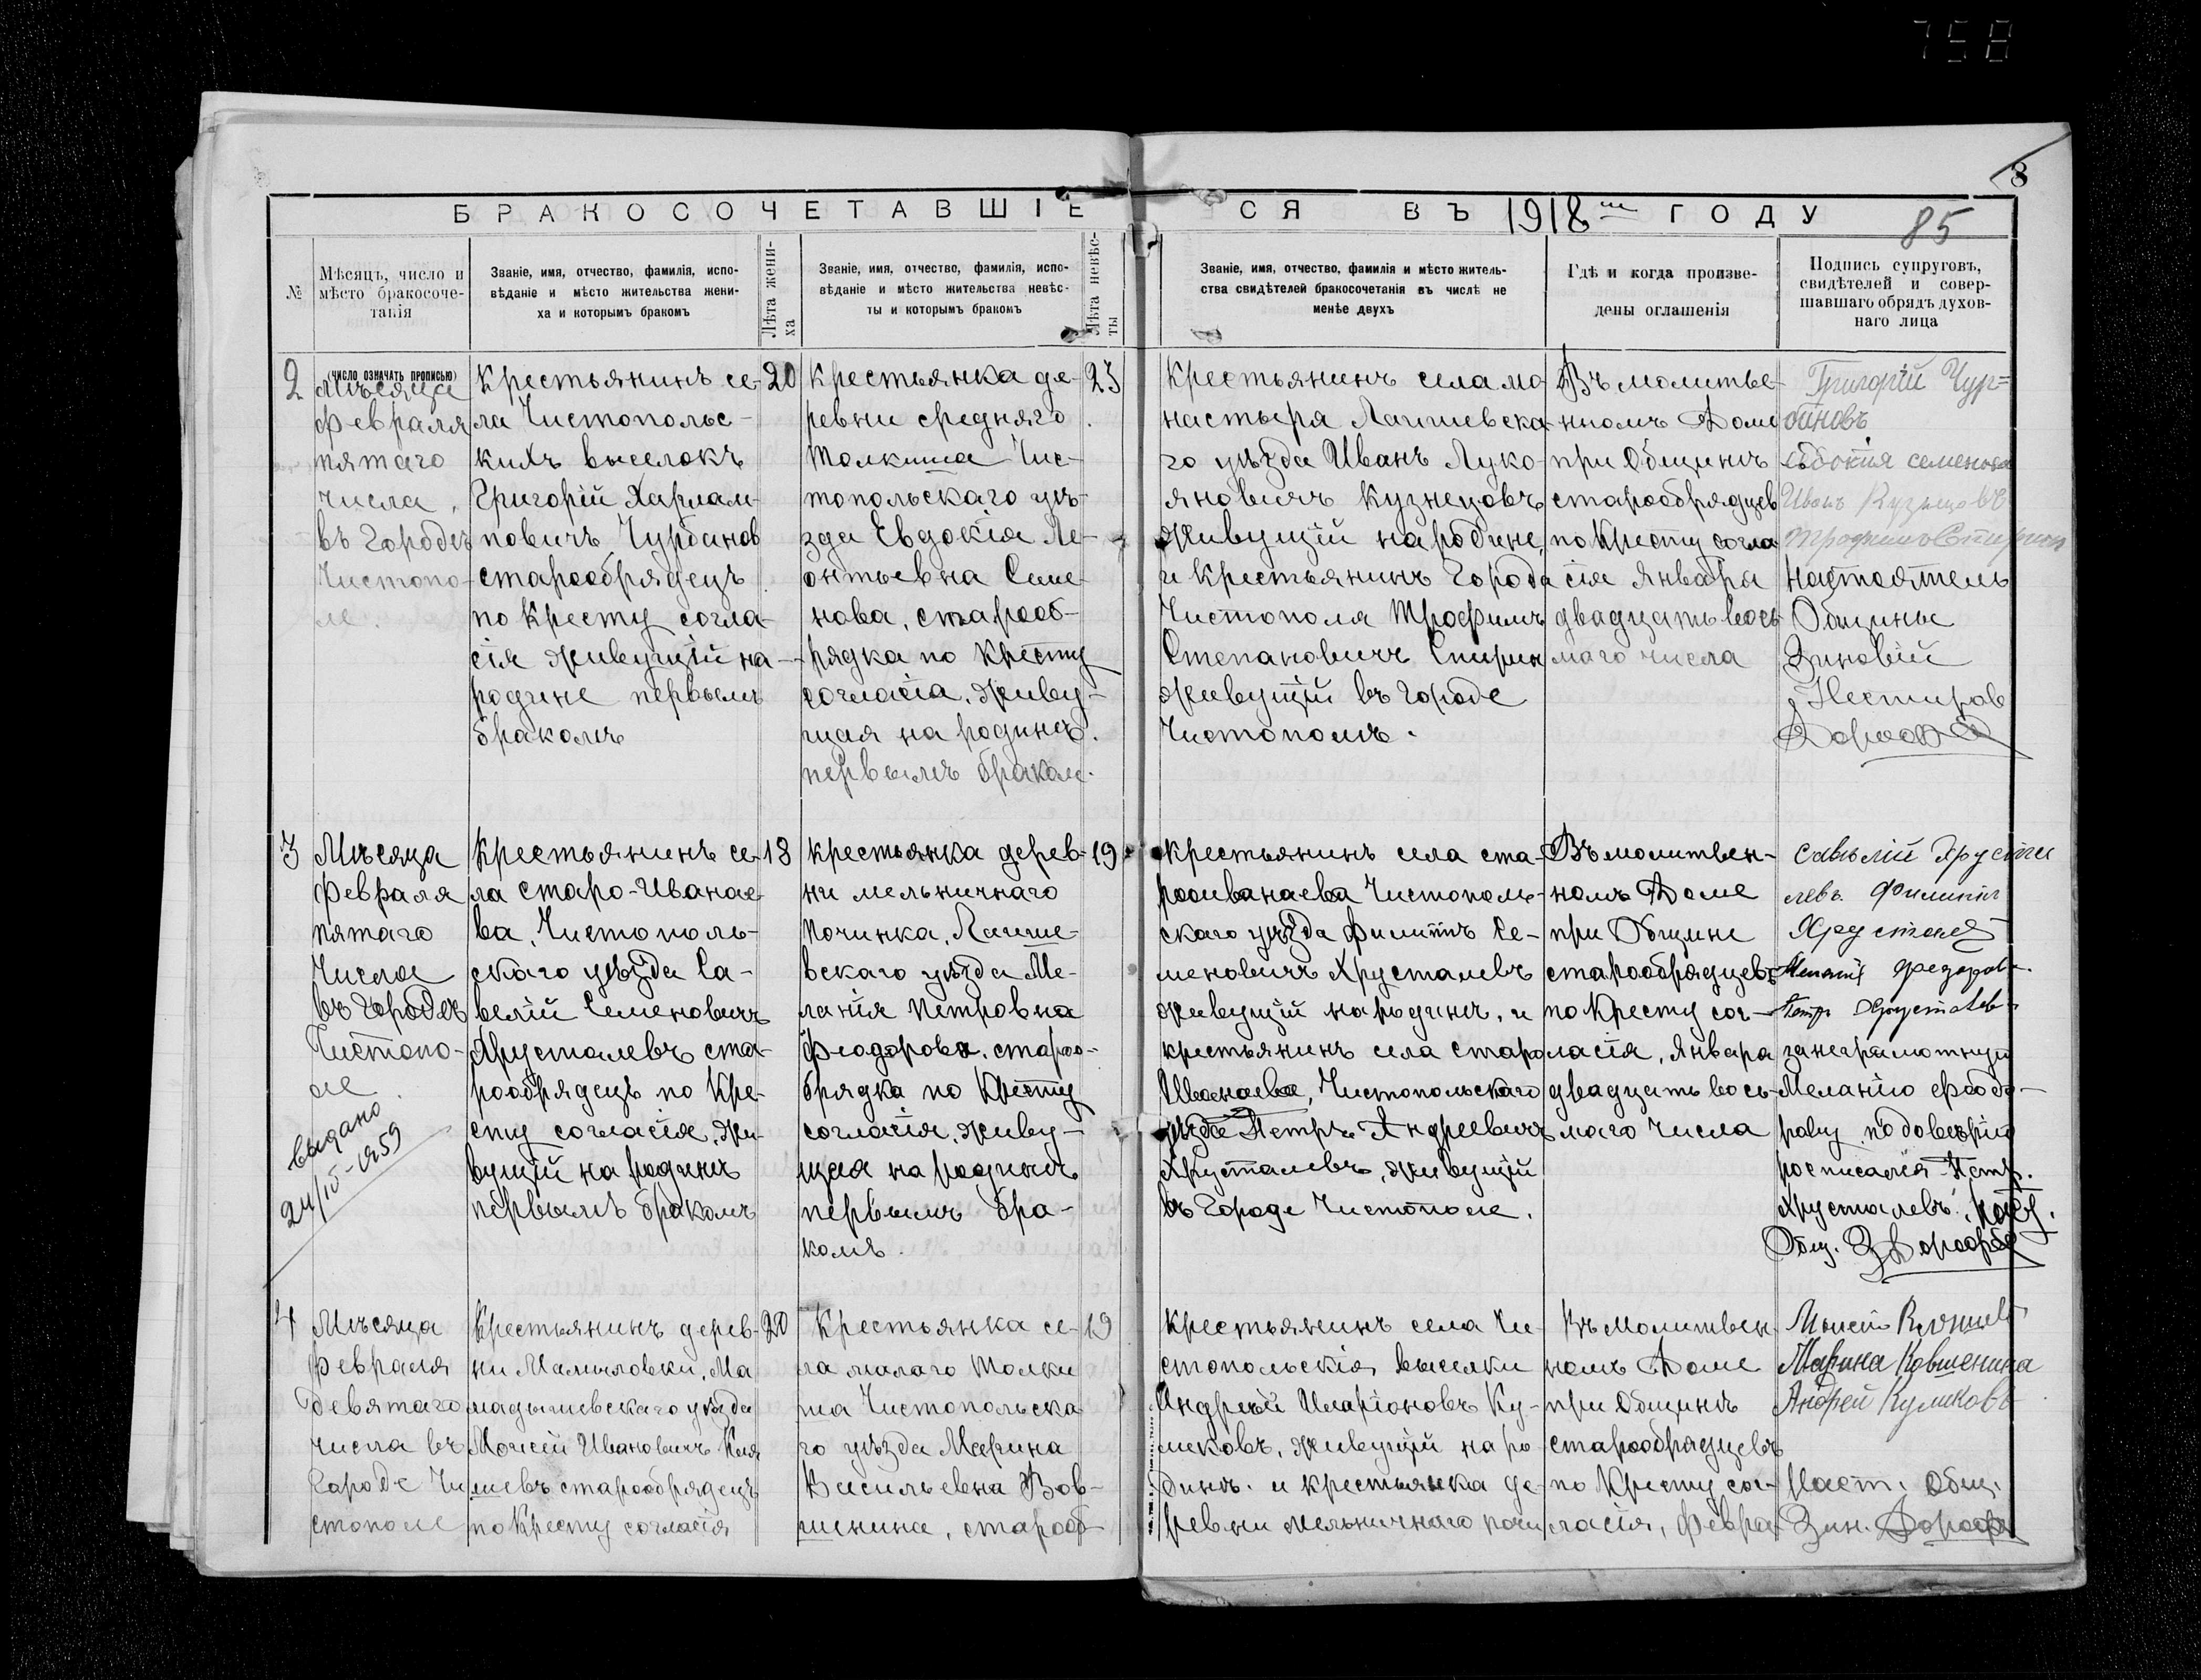 758
8
БРАКОСОЧЕТАВШІЕСЯ ВЪ 1918 ГОДУ
85
№
Мѣсяцъ, число и
мѣсто бракосоче-
танія
Званіе, имя, отчество, фамилія, испо-
вѣданіе и мѣсто жительства жени-
ха и которымъ бракомъ
Лѣта жени-
ха
Званіе, имя, отчество, фамилія, испо-
вѣданіе и мѣсто жительства невѣс-
ты и которымъ бракомъ
Лѣта невѣс-
ты
Званіе, имя, отчество, фамилія и мѣсто житель-
ства свидѣтелей бракосочетанія въ числѣ не
менѣе двухъ
Гдѣ и когда произве-
дены оглашенія
Подпись супруговъ,
свидѣтелей и совер-
шавшаго обрядъ духов-
наго лица
2
(число означать прописью)
Мѣсяца
февраля
пятаго
числа,
въ Городѣ
Чистопо-
ле.
Крестьянинъ се-
ла Чистопольс-
кихъ выселокъ
Григорій Харлам-
повичъ Чурбанов
старообрядецъ
по Кресту согла-
сія живущій на
родине первымъ
бракомъ
20
Крестьянка де-
ревни средняго
Толкиша Чис-
топольскаго уѣ-
зда Евдокія Ле-
онтьевна Семе-
нова, старооб-
рядка по Кресту
согласія, живу-
щая на родинѣ.
первымъ браком.
23
Крестьянинъ села мо-
настыря Лаишевска-
го уѣзда Иванъ Луко-
яновичъ Кузнецовъ
живущій на родине,
и крестьянинъ Города
Чистополя Трофимъ
Степановичъ Спирин
живущій въ Городе
Чистополѣ.
Въ молитве-
нномъ Доме
при Общинѣ
старообрядцев
по Кресту согла
сія Января
двадцать вось
маго числа
Григорій Чур=
бановъ
Евдокія семенова
Иванъ Кузнецовъ
Трофимъ Спирин
настоятель
Общины
Зиновій
Нестиров
3
Мѣсяца
февраля
пятаго
Числа
въ Городѣ
Чистопо-
ле
выдано
24/IV-1959
Крестьянинъ се-
ла старо-Иванае-
ва, Чистополь-
скаго уѣзда Са-
велій Семеновичъ
Хрусталевъ ста-
рообрядецъ по Кре-
сту согласія, жи-
вущій на родинѣ
первымъ бракомъ
18
крестьянка дерев-
ни мельничнаго
Починка, Лаише-
вскаго уѣзда Ме-
ланія Петровна
Феодорова, староо-
брядка по Кресту
согласія, живу-
щая на родинѣ
первымъ бра-
комъ.
19
крестьянинъ села ста-
роиванаева Чистополь-
скаго уѣзда Филиппъ Се-
меновичъ Хрусталевъ
живущій на родинѣ, и
крестьянинъ села старо
Иванаева, Чистопольскаго
уѣзда Петръ Андреевичъ
Хрусталевъ, живущій
въ Городе Чистополе.
Въ молитвен-
номъ Доме
при Общине
старообрядцевъ
по Кресту сог-
ласія, Января
двадцать вось-
маго числа
Савѣлій Хруста
левъ. Филиппъ
Хрусталев
Меланія Федорова.
Петръ Хрусталев
за неграмотную
Меланію Феодо-
рову по доверію
росписался Петр.
Хрусталевъ. наст.
Общ. З. Дороф
4
Мѣсяца
февраля
девятаго
числа въ
Городе Чи
стополе
Крестьянинъ дерев-
ни Мамыловки, Ма
мадышевскаго уѣзда
Моисей Ивановичъ
старообрядецъ
по Кресту согласія
20
Крестьянка се-
ла малаго Толки
ша Чистопольска
го уѣзда Марина
Васильевна Вов-
шенина, старооб-
19
Крестьянинъ села Чи-
стопольскія выселки
Андрей Иларіоновъ Ку-
ликовъ, живущій на ро
динѣ. и крестьянка де-
ревни мельничнаго почи
Въ Молитвен
номъ Доме
при Общинѣ
старообрядцевъ
по Кресту сог-
ласія, февра
Моисей
Марина Вовшенина
Андрей Куликовъ
Наст. Общ.
Зин. Дороф